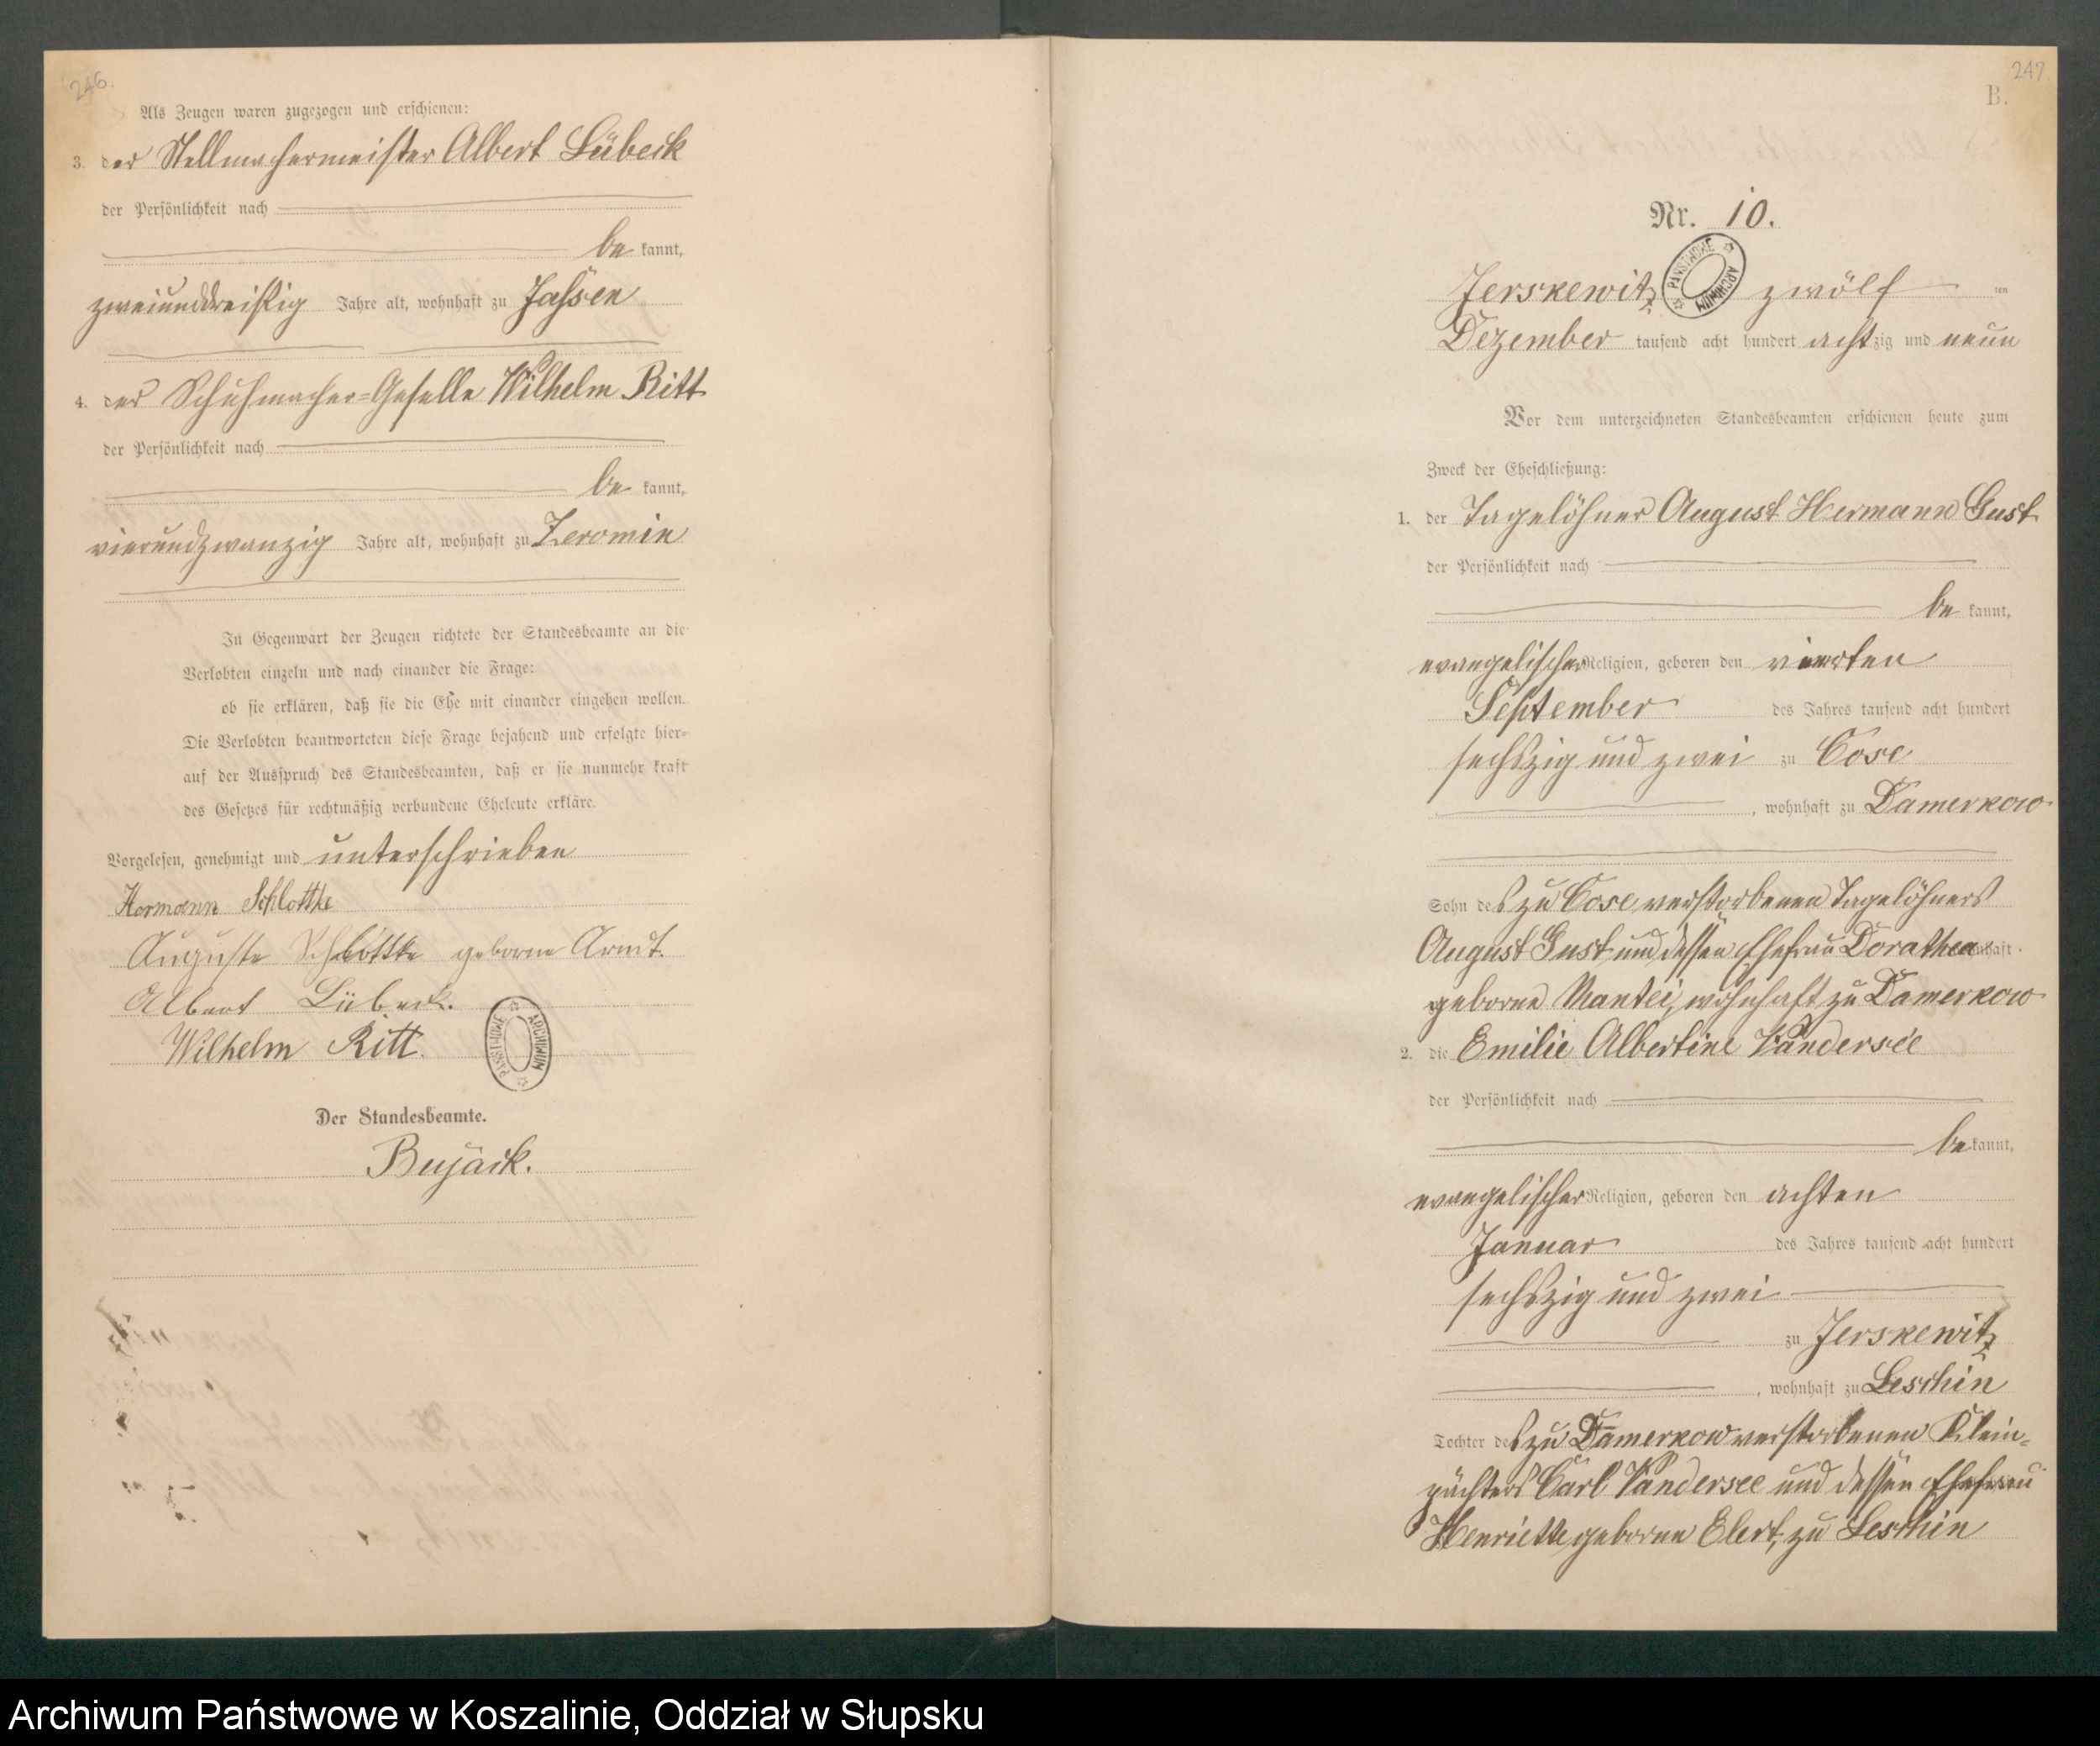 246.
Als Zeugen waren zugezogen und erschienen:
3. der Stellmachermeister Albert Lübeck
der Persönlichkeit nach
be kannt,
zweiunddreißig Jahre alt, wohnhaft zu Jassen
4. der Schuhmacher=Geselle Wilhelm Ritt
der Persönlichkeit nach
be kannt,
vierundzwanzig Jahre alt, wohnhaft zu Zeromin
In Gegenwart der Zeugen richtete der Standesbeamte an die
Verlobten einzeln und nach einander die Frage:
ob sie erklären, daß sie die Ehe mit einander eingehen wollen.
Die Verlobten beantworteten diese Frage bejahend und erfolgte hier=
auf der Ausspruch des Standesbeamten, daß er sie nunmehr kraft
des Gesetzes für rechtmäßig verbundene Eheleute erkläre.
Vorgelesen, genehmigt und unterschrieben
Hermann Schlottke
Auguste Schlottke geborne Arndt.
Albert Lübeck.
Wilhelm Ritt.
ARCHIWUM PAŃSTWOWE
Der Standesbeamte.
Bujack.
247.
B.
Nr. 10.
ARCHIWUM PAŃSTWOWE
Jerskewitz zwölf ten
Dezember tausend acht hundert achtzig und neun
Vor dem unterzeichneten Standesbeamten erschienen heute zum
Zweck der Eheschließung:
1. der Tagelöhner August Hermann Gust
der Persönlichkeit nach
be kannt,
evangelischer Religion, geboren den vierten
September des Jahres tausend acht hundert
sechszig und zwei zu Cose
, wohnhaft zu Damerkow
Sohn des zu Cose verstorbenen Tagelöhners
August Gust und dessen Ehefrau Dorathea
geborne Mantei, wohnhaft zu Damerkow
2. die Emilie Albertine Vandersee
der Persönlichkeit nach
be kannt,
evangelischer Religion, geboren den achten
Januar des Jahres tausend acht hundert
sechszig und zwei
zu Jerskewitz
, wohnhaft zu Leschin
Tochter des zu Damerkow verstorbenen Klein=
pächters Carl Vandersee und dessen Ehefrau
Henriette geborne Elert, zu Leschin
Archiwum Państwowe w Koszalinie, Oddział w Słupsku